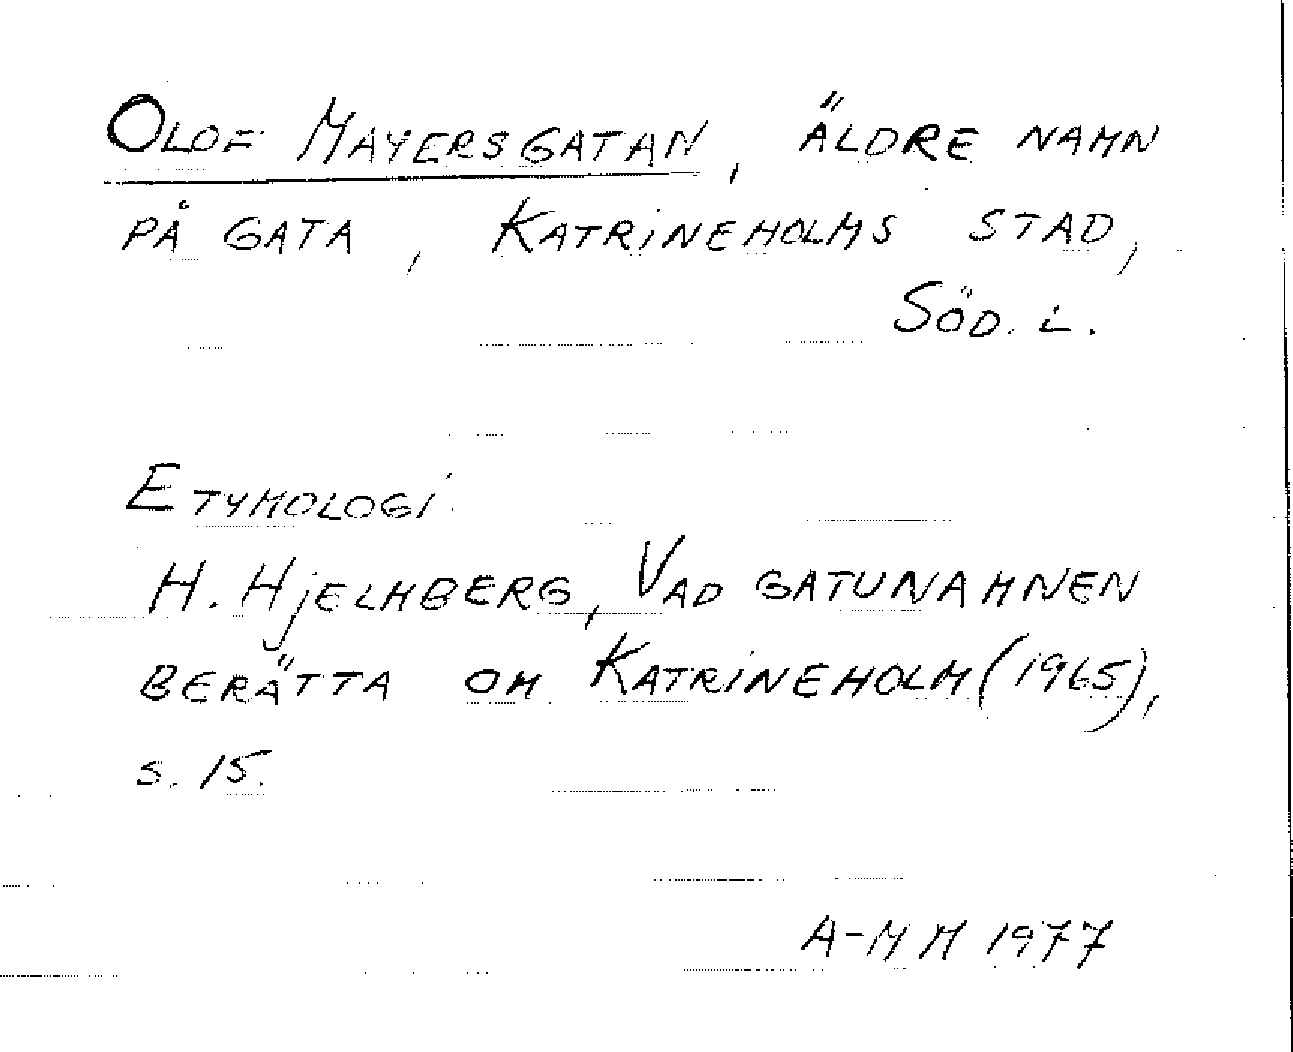 OLOF MAYERSGATAN, ÄLDRE NAMN
PÅ GATA, KATRINEHOLMS STAD,
SÖD. L.
ETYMOLOGI.
H. HJELMBERG, VAD GATUNAMNEN
BERÄTTA OM KATRINEHOLM (1965),
S. 15.
A-M M 1977